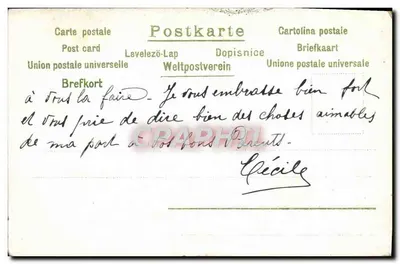 Carte postale Postkarte Cartolina postale
Post card Levelező-Lap Dopisnice Briefkaart
Union postale universelle Weltpostverein Unione postale universale
Brefkort
à vous la faire. Je vous embrasse bien fort
et vous prie de dire bien des choses aimables
de ma part à vos bons Parents.
Cécile